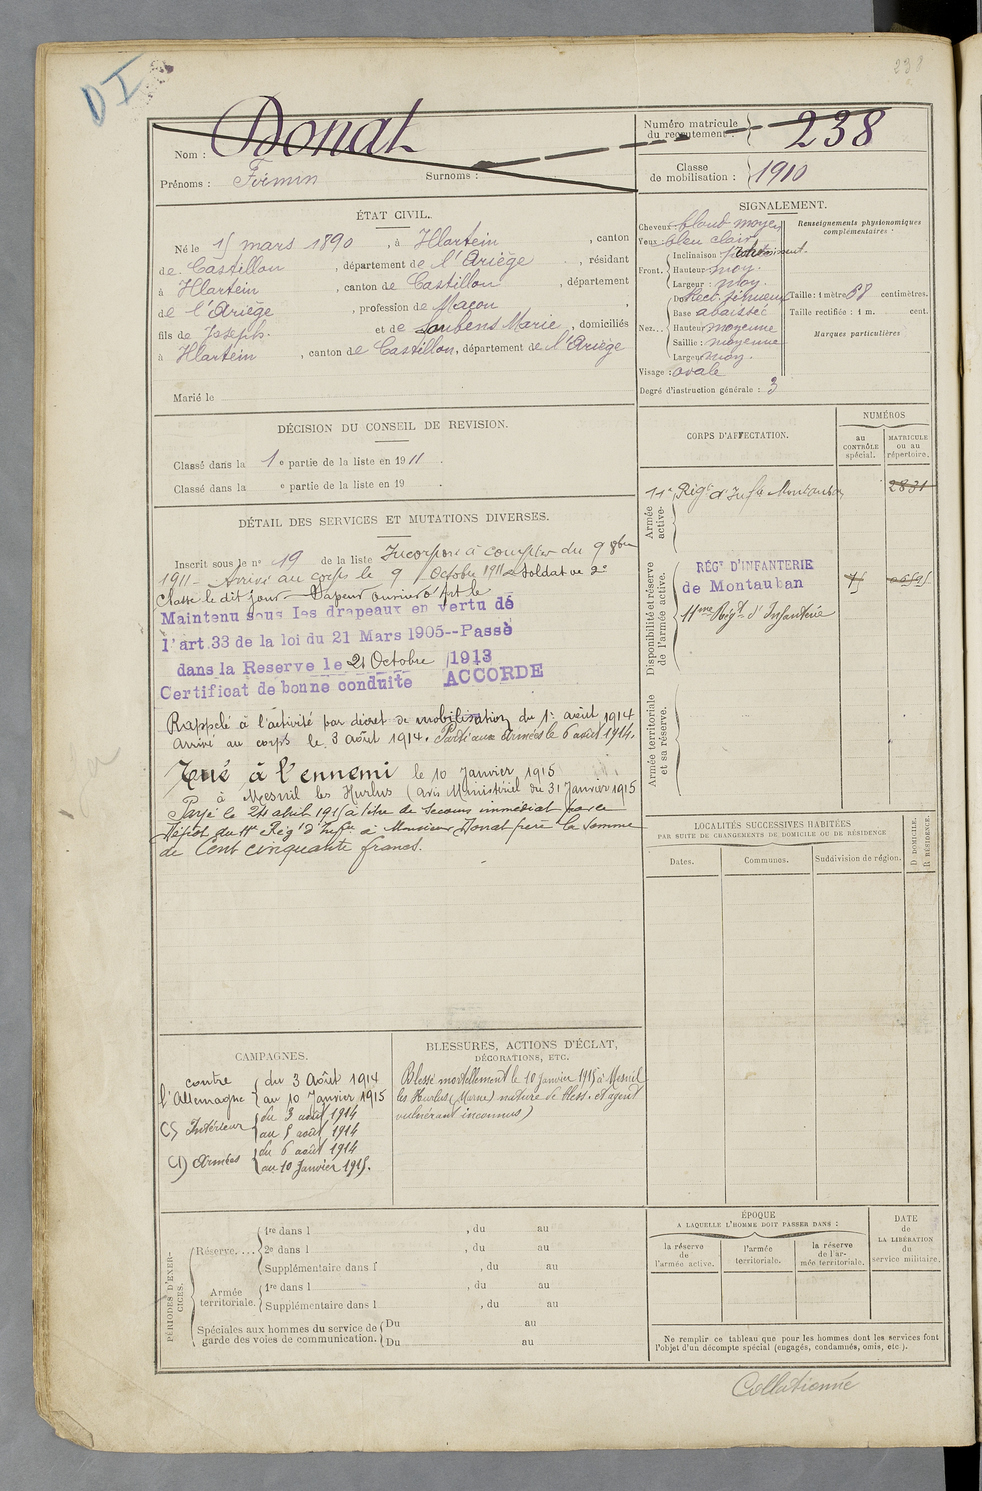 238
D I
Nom : Donat
Prénoms : Firmin Surnoms :
Numéro matricule du recrutement : 238
Classe de mobilisation : 1910
ÉTAT CIVIL.
Né le 15 mars 1890, à Illartein, canton
de Castillon, département de l'Ariège, résidant
à Illartein, canton de Castillon, département
de l'Ariège, profession de Maçon,
fils de Joseph et de Soubens Marie, domiciliés
à Illartein, canton de Castillon, département de l'Ariège
Marié le
SIGNALEMENT.
Cheveux blond moyen
Yeux bleu clair
Front. Inclinaison
Hauteur moy.
Largeur : moy.
Nez... Dos Rect. sinueux
Base abaissée
Hauteur moyenne
Saillie : moyenne
Largeur moy.
Visage : ovale
Degré d'instruction générale : 3
Renseignements physionomiques complémentaires :
Taille : 1 mètre 68 centimètres.
Taille rectifiée : 1 m. cent.
Marques particulières
DÉCISION DU CONSEIL DE REVISION.
Classé dans la 1e partie de la liste en 1911.
Classé dans la e partie de la liste en 19 .
DÉTAIL DES SERVICES ET MUTATIONS DIVERSES.
Inscrit sous le no 19 de la liste Incorporé à compter du 9 8bre
1911 - Arrivé au corps le 9 Octobre 1911 Soldat de 2e
Classe le dit jour - Sapeur ouvrier d'Art le
Maintenu sous les drapeaux en vertu de
l'art.33 de la loi du 21 Mars 1905--Passé
dans la Reserve le 21 Octobre 1913
Certificat de bonne conduite ACCORDE
Rappelé à l'activité par décret de mobilisation du 1er août 1914
Arrivé au corps le 3 août 1914. Parti aux Armées le 6 août 1914.
Tué à l'ennemi le 10 Janvier 1915
à Mesnil les Hurlus (avis Ministériel du 31 Janvier 1915
Payé le 24 avril 1915 à titre de secours immédiat par le
Dépôt du 11e Rég. d'Infie à Monsieur Donat frère la somme
de Cent cinquante francs.
CORPS D'AFFECTATION.
NUMÉROS
au CONTRÔLE spécial.
MATRICULE ou au répertoire.
Armée active.
11e Régt d'Infie Montauban 2831
Disponibilité et réserve de l'armée active.
RÉGT D'INFANTERIE
de Montauban
11me Régt d'Infanterie
Armée territoriale et sa réserve.
LOCALITÉS SUCCESSIVES HABITÉES
PAR SUITE DE CHANGEMENTS DE DOMICILE OU DE RÉSIDENCE
Dates. Communes. Subdivision de région. D DOMICILE. R RÉSIDENCE.
CAMPAGNES.
contre l'Allemagne du 3 Août 1914
au 10 Janvier 1915
CS Intérieur du 3 août 1914
au 5 août 1914
CD Armées du 6 août 1914
au 10 Janvier 1915.
BLESSURES, ACTIONS D'ÉCLAT,
DÉCORATIONS, ETC.
Blessé mortellement le 10 Janvier 1915 à Mesnil
les Hurlus (Marne) nature de bless. et agent
vulnérant inconnus)
PÉRIODES D'EXERCICES.
Réserve.... 1re dans l , du au
2e dans l , du au
Supplémentaire dans l , du au
Armée territoriale. 1re dans l , du au
Supplémentaire dans l , du au
Spéciales aux hommes du service de garde des voies de communication. Du au
Du au
ÉPOQUE
A LAQUELLE L'HOMME DOIT PASSER DANS :
la réserve de l'armée active.
l'armée territoriale.
la réserve de l'armée territoriale.
DATE de LA LIBÉRATION du service militaire.
Ne remplir ce tableau que pour les hommes dont les services font
l'objet d'un décompte spécial (engagés, condamnés, omis, etc ).
Collationné